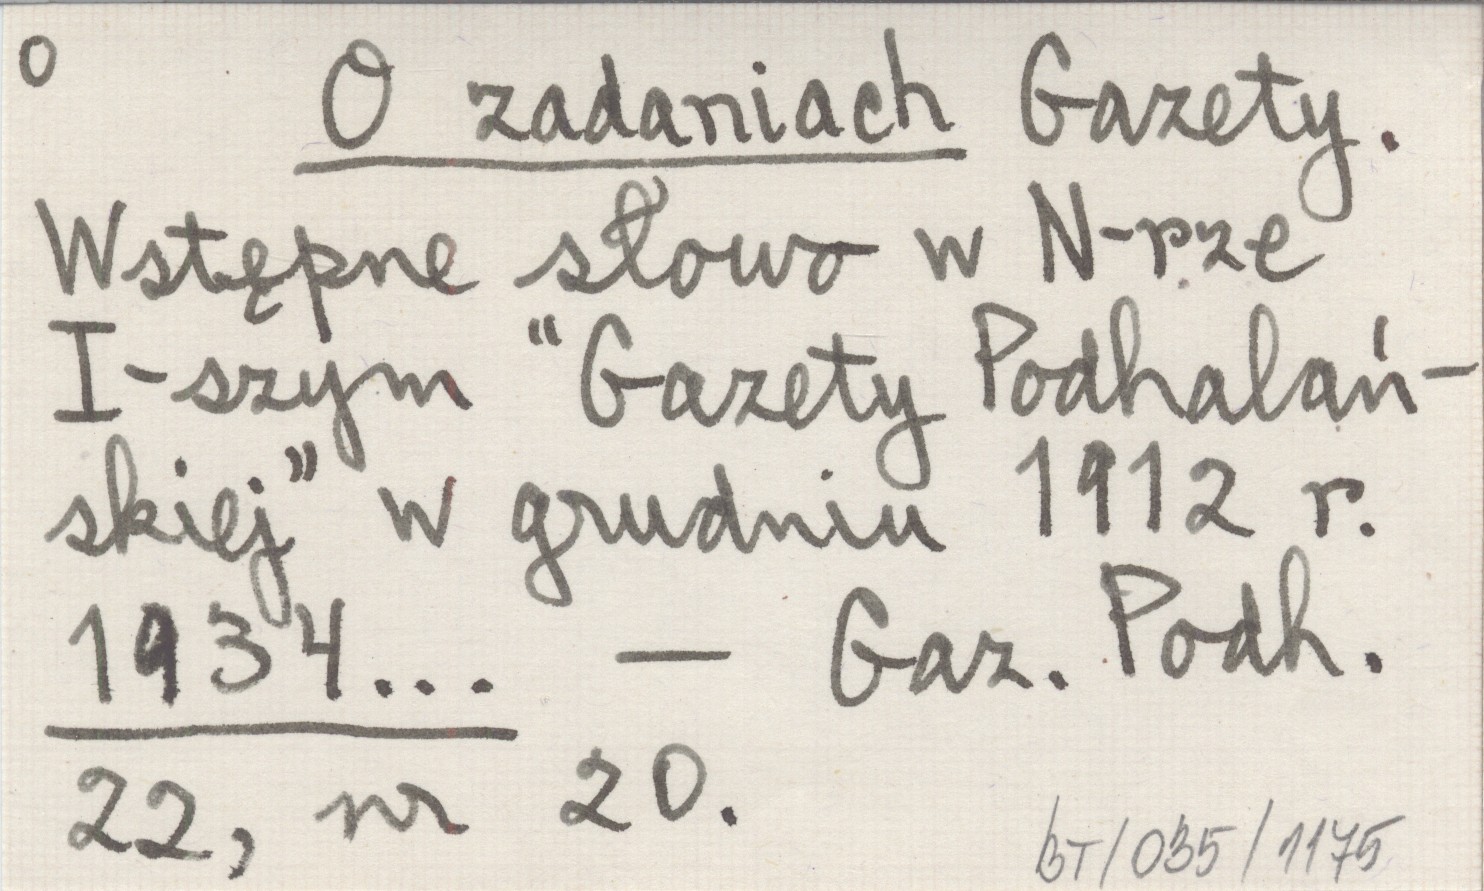 O
O zadaniach Gazety.
Wstępne słowo w N-rze
I-szym "Gazety Podhalań-
skiej" w grudniu 1912 r.
1934... — Gaz. Podh.
22, nr 20.
BT/035/1175